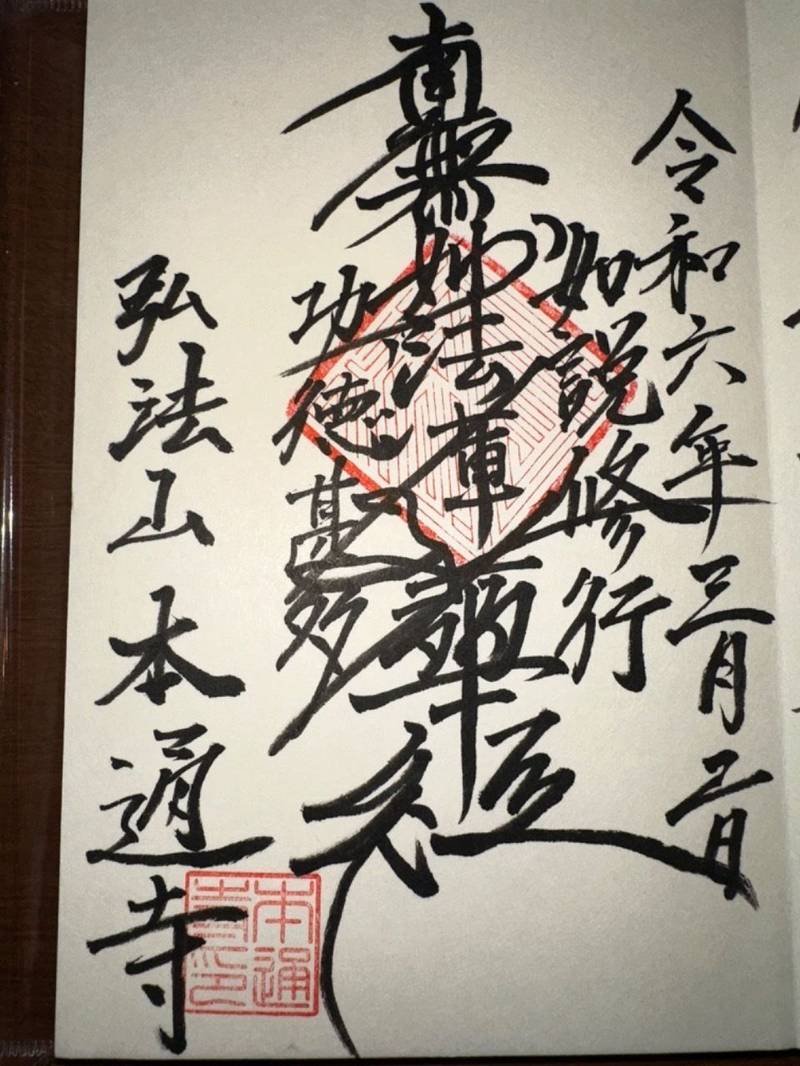 令和六年三月三日
如説修行
南無妙法蓮華経
功徳甚多
弘法山本通寺
本通
寺印